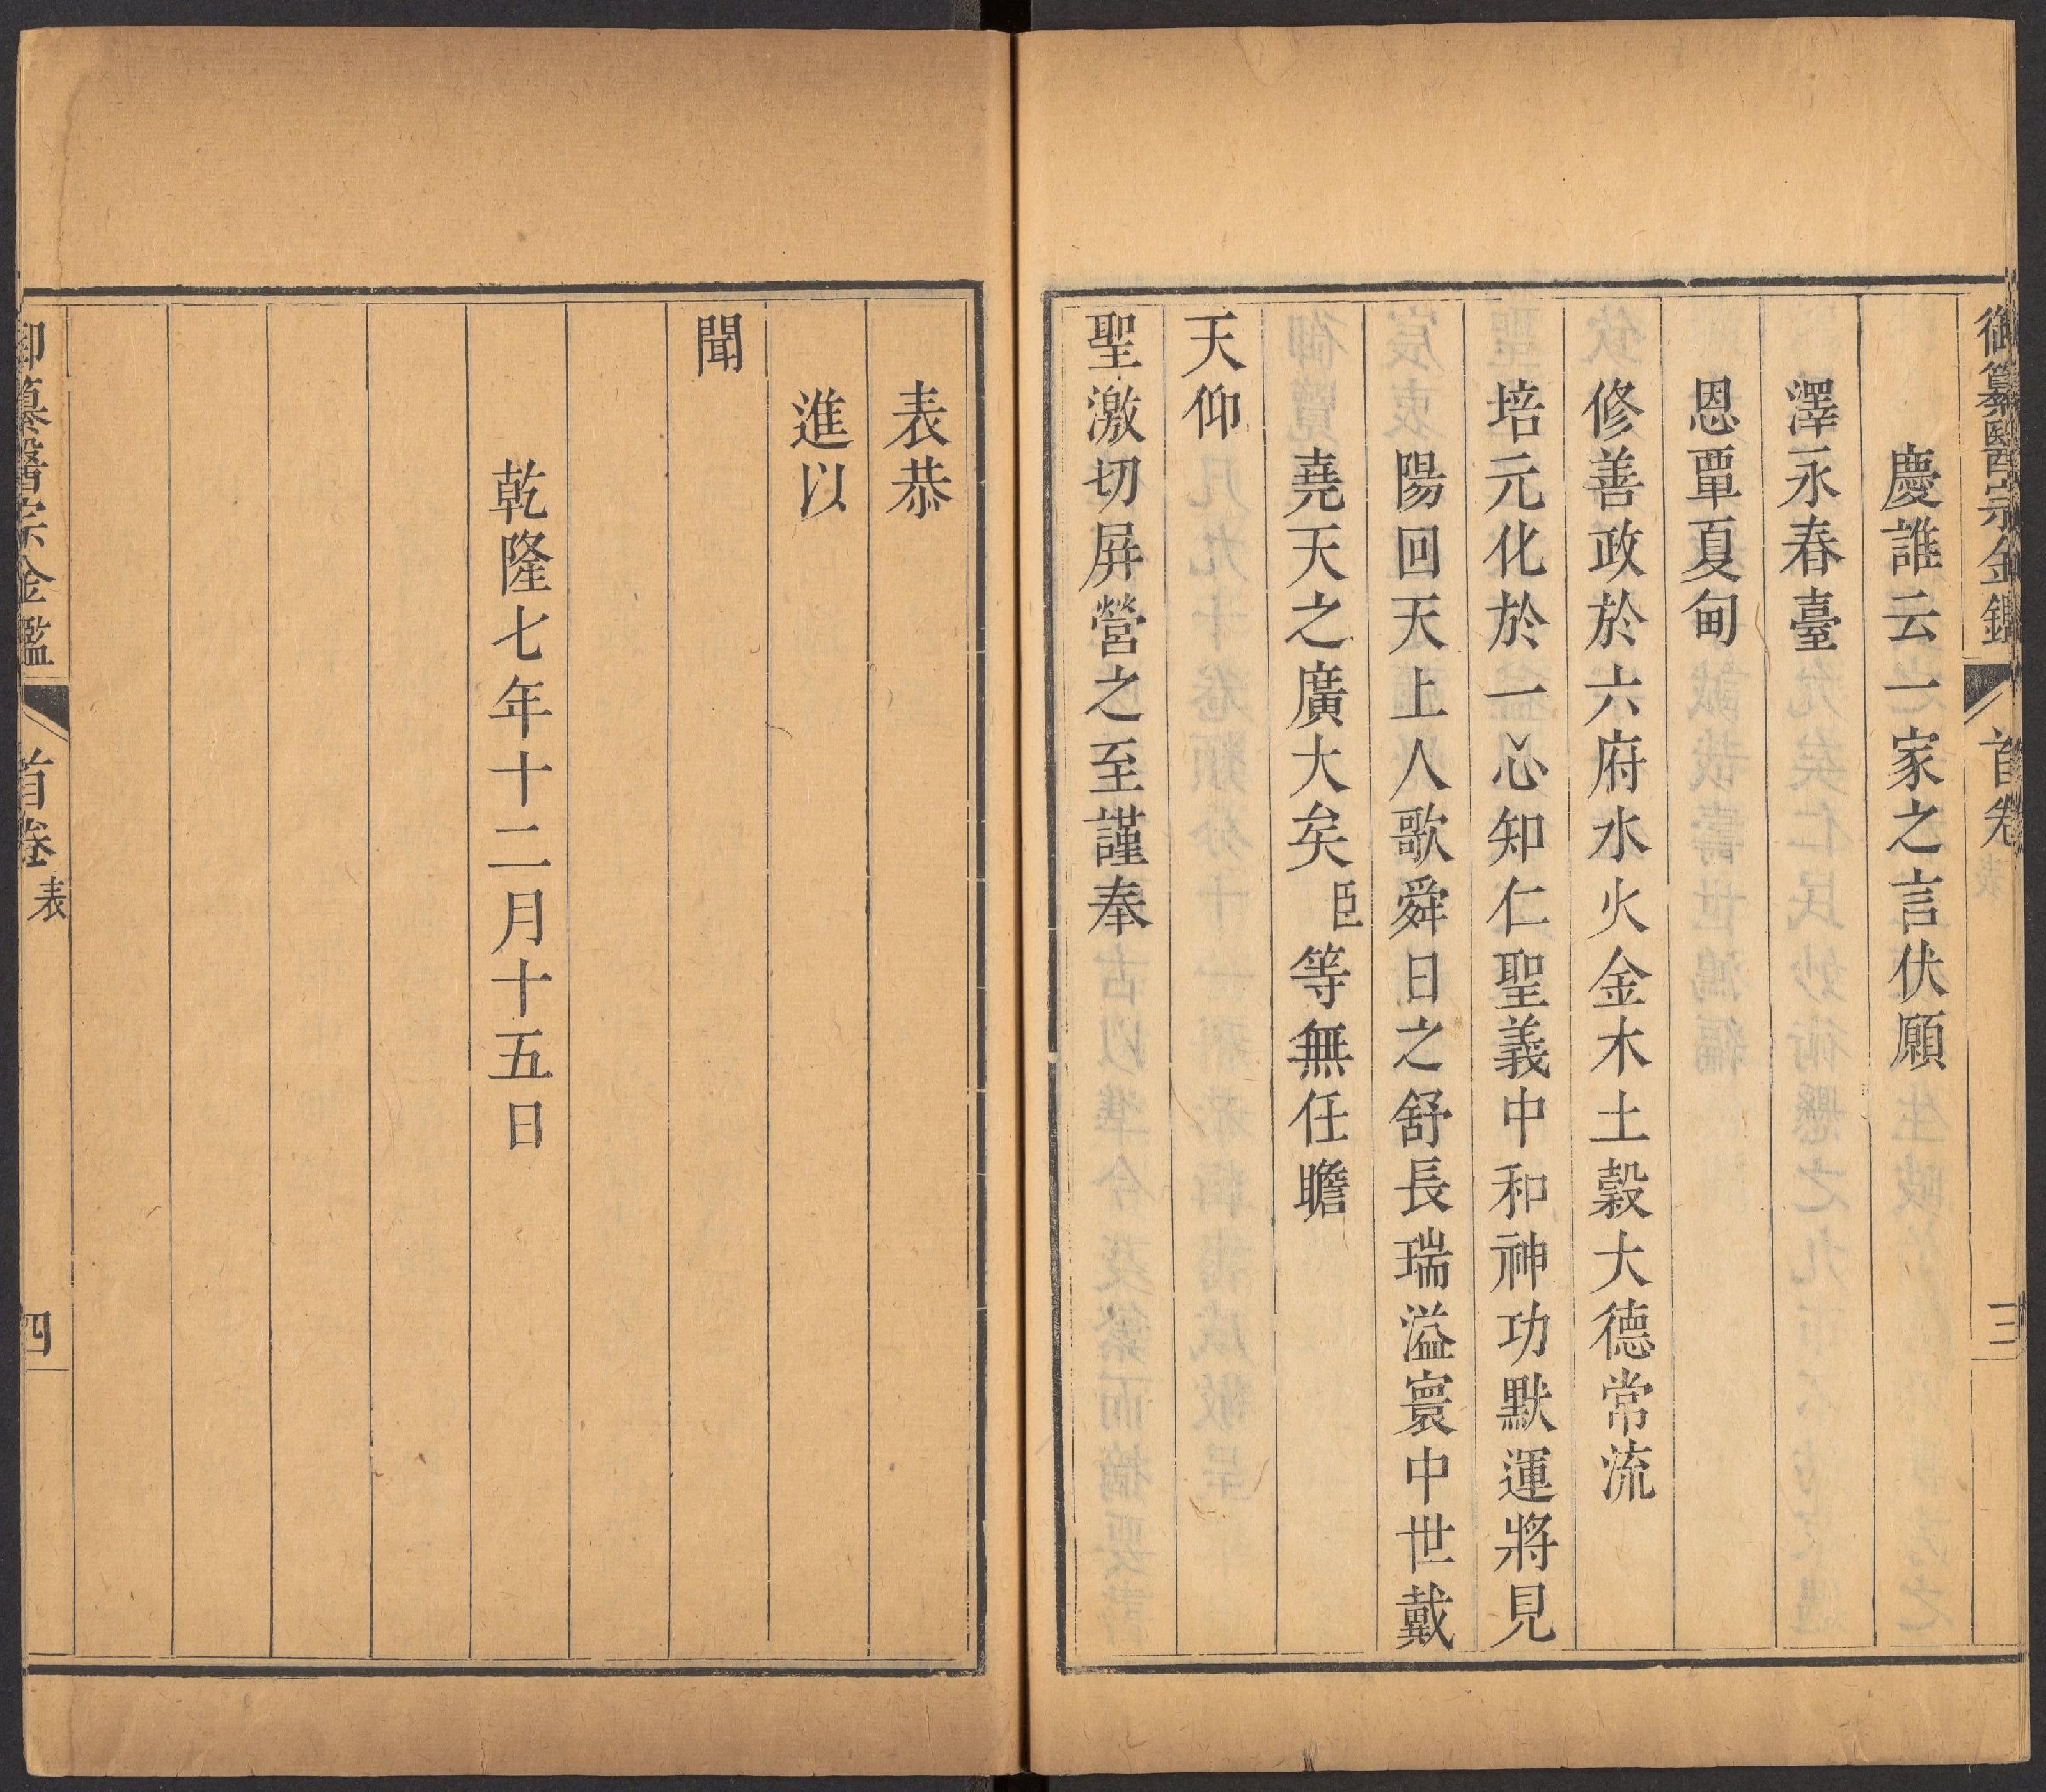 御纂醫宗金鑑 首卷 表 三
慶誰云一家之言伏願
澤永春臺
恩覃夏甸
修善政於六府水火金木土穀大德常流
培元化於一心知仁聖義中和神功默運將見
陽回天上人歌舜日之舒長瑞溢寰中世戴
堯天之廣大矣臣等無任瞻
天仰
聖激切屏營之至謹奉
表恭
進以
聞
乾隆七年十二月十五日
御纂醫宗金鑑 首卷 表 四